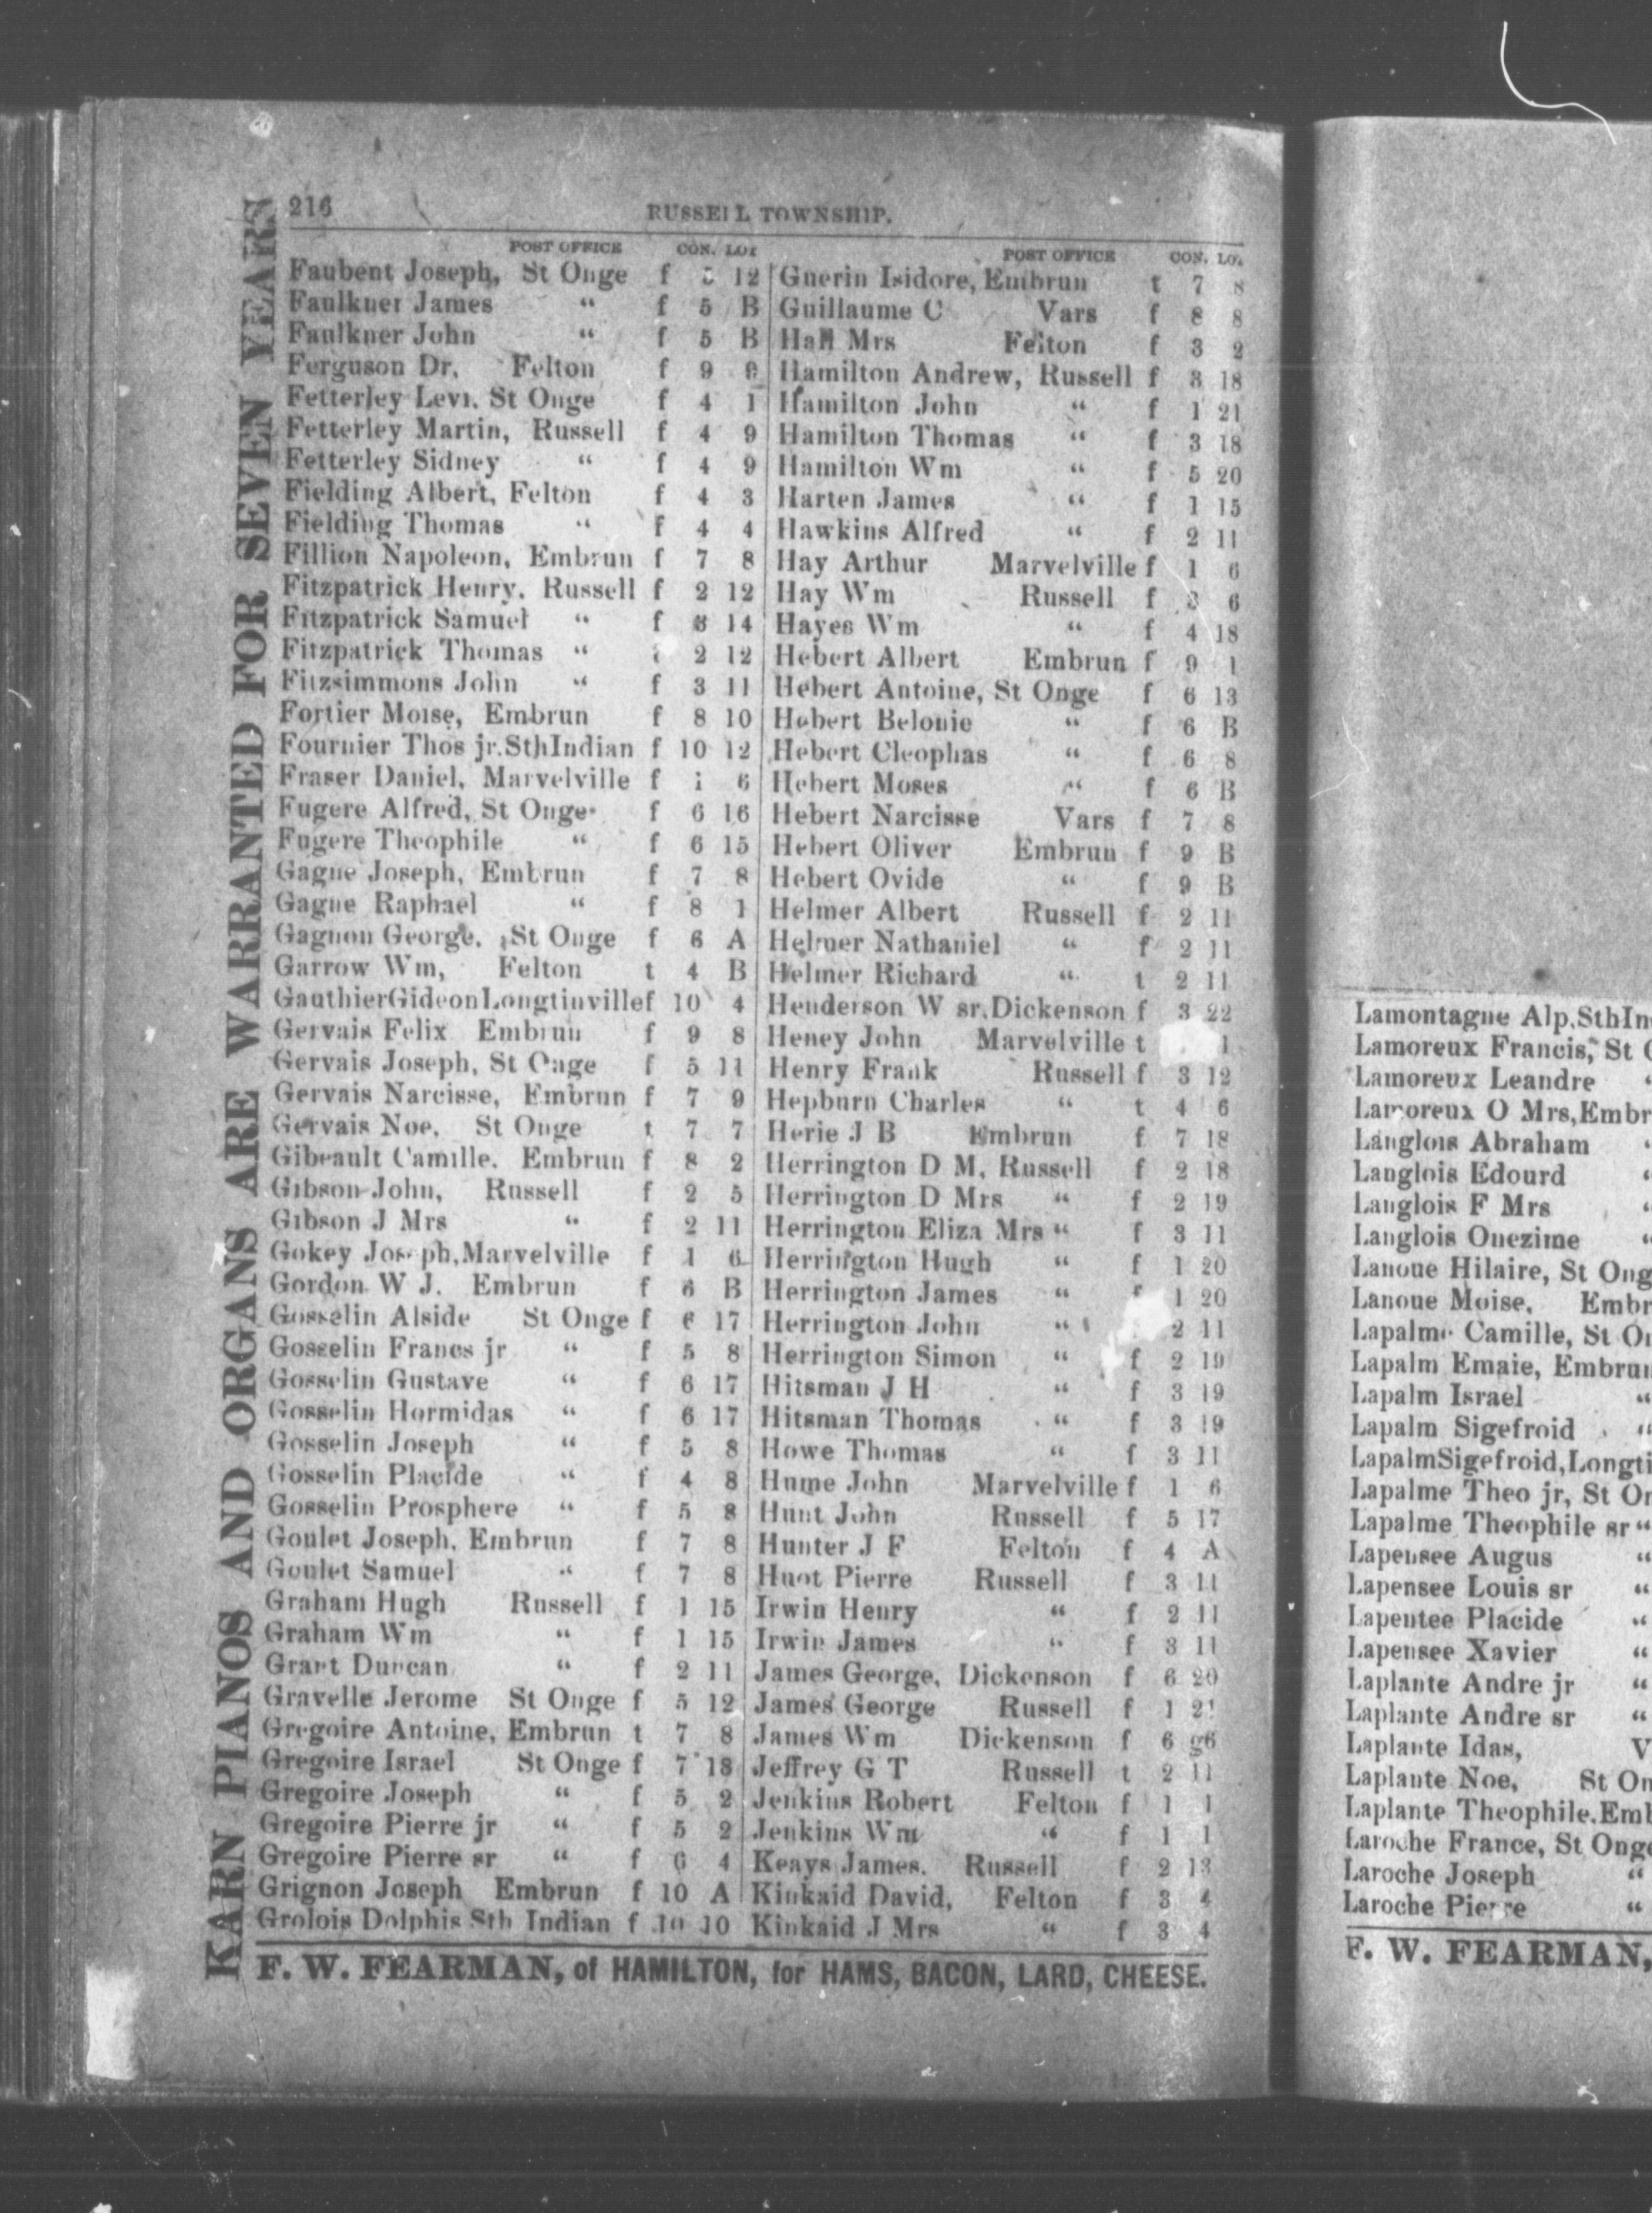 216
RUSSELL TOWNSHIP.
KARN PIANOS AND ORGANS ARE WARRANTED FOR SEVEN YEARS
POST OFFICE CON. LOT
Faubent Joseph, St Onge f 12
Faulkner James “ f 5 B
Faulkner John “ f 5 B
Ferguson Dr. Felton f 9
Fetterley Levi. St Onge f 4 1
Fetterley Martin, Russell f 4 9
Fetterley Sidney “ f 4 9
Fielding Albert, Felton f 4 3
Fielding Thomas “ f 4 4
Fillion Napoleon, Embrun f 7 8
Fitzpatrick Henry. Russell f 2 12
Fitzpatrick Samuel “ f 14
Fitzpatrick Thomas “ 2 12
Fitzsimmons John “ f 3 11
Fortier Moise, Embrun f 8 10
Fournier Thos jr.SthIndian f 10 12
Fraser Daniel, Marvelville f 1 6
Fugere Alfred, St Onge f 6 16
Fugere Theophile “ f 6 15
Gagne Joseph, Embrun f 7 8
Gagne Raphael “ f 8 1
Gagnon George. St Onge f 6 A
Garrow Wm, Felton t 4 B
GauthierGideonLongtinvillef 10 4
Gervais Felix Embrun f 9 8
Gervais Joseph, St Onge f 5 11
Gervais Narcisse, Embrun f 7 9
Gervais Noe. St Onge t 7 7
Gibeault Camille. Embrun f 8 2
Gibson John, Russell f 2 5
Gibson J Mrs “ f 2 11
Gokey Joseph,Marvelville f 1 6
Gordon W J. Embrun f 6 B
Gosselin Alside St Onge f 6 17
Gosselin Francs jr “ f 5 8
Gosselin Gustave “ f 6 17
Gosselin Hormidas “ f 6 17
Gosselin Joseph “ f 5 8
Gosselin Placide “ f 4 8
Gosselin Prosphere “ f 5 8
Goulet Joseph. Embrun f 7 8
Goulet Samuel “ f 7 8
Graham Hugh Russell f 1 15
Graham Wm “ f 1 15
Grant Duncan “ f 2 11
Gravelle Jerome St Onge f 5 12
Gregoire Antoine, Embrun t 7 8
Gregoire Israel St Onge f 7 18
Gregoire Joseph “ f 5 2
Gregoire Pierre jr “ f 5 2
Gregoire Pierre sr “ f 6 4
Grignon Joseph Embrun f 10 A
Grolois Dolphis Sth Indian f 10 10
POST OFFICE CON. LOT
Guerin Isidore, Embrun t 7 8
Guillaume C Vars f 8 8
Hall Mrs Felton f 3 2
Hamilton Andrew, Russell f 3 18
Hamilton John “ f 1 21
Hamilton Thomas “ f 3 18
Hamilton Wm “ f 5 20
Harten James “ f 1 15
Hawkins Alfred “ f 2 11
Hay Arthur Marvelville f 1 6
Hay Wm Russell f 3 6
Hayes Wm “ f 4 18
Hebert Albert Embrun f 9 1
Hebert Antoine, St Onge f 6 13
Hebert Belonie “ f 6 B
Hebert Cleophas “ f 6 8
Hebert Moses “ f 6 B
Hebert Narcisse Vars f 7 8
Hebert Oliver Embrun f 9 B
Hebert Ovide “ f 9 B
Helmer Albert Russell f 2 11
Helmer Nathaniel “ f 2 11
Helmer Richard “ t 2 11
Henderson W sr.Dickenson f 3 22
Heney John Marvelville t 1
Henry Frank Russell f 3 12
Hepburn Charles “ t 4 6
Herie J B Embrun f 7 18
Herrington D M, Russell f 2 18
Herrington D Mrs “ f 2 19
Herrington Eliza Mrs “ f 3 11
Herrington Hugh “ f 1 20
Herrington James “ 1 20
Herrington John “ 2 11
Herrington Simon “ f 2 19
Hitsman J H “ f 3 19
Hitsman Thomas “ f 3 19
Howe Thomas “ f 3 11
Hume John Marvelville f 1 6
Hunt John Russell f 5 17
Hunter J F Felton f 4 A
Huot Pierre Russell f 3 11
Irwin Henry “ f 2 11
Irwin James “ f 3 11
James George, Dickenson f 6 20
James George Russell f 1 21
James Wm Dickenson f 6 g6
Jeffrey G T Russell t 2 11
Jenkins Robert Felton f 1 1
Jenkins Wm “ f 1 1
Keays James. Russell f 2 13
Kinkaid David, Felton f 3 4
Kinkaid J Mrs “ f 3 4
F. W. FEARMAN, of HAMILTON, for HAMS, BACON, LARD, CHEESE.
Lamontagne Alp.SthIn
Lamoreux Francis, St
Lamoreux Leandre
Lamoreux O Mrs,Embr
Langlois Abraham
Langlois Edourd “
Langlois F Mrs “
Langlois Onezime “
Lanoue Hilaire, St Ong
Lanoue Moise. Embr
Lapalme Camille, St On
Lapalm Emaie, Embrun
Lapalm Israel “
Lapalm Sigefroid “
LapalmSigefroid,Longti
Lapalme Theo jr, St On
Lapalme Theophile sr “
Lapensee Augus “
Lapensee Louis sr “
Lapentee Placide “
Lapensee Xavier “
Laplante Andre jr “
Laplante Andre sr “
Laplante Idas, V
Laplante Noe, St On
Laplante Theophile.Emb
Laroche France, St Onge
Laroche Joseph “
Laroche Pierre “
F. W. FEARMAN,